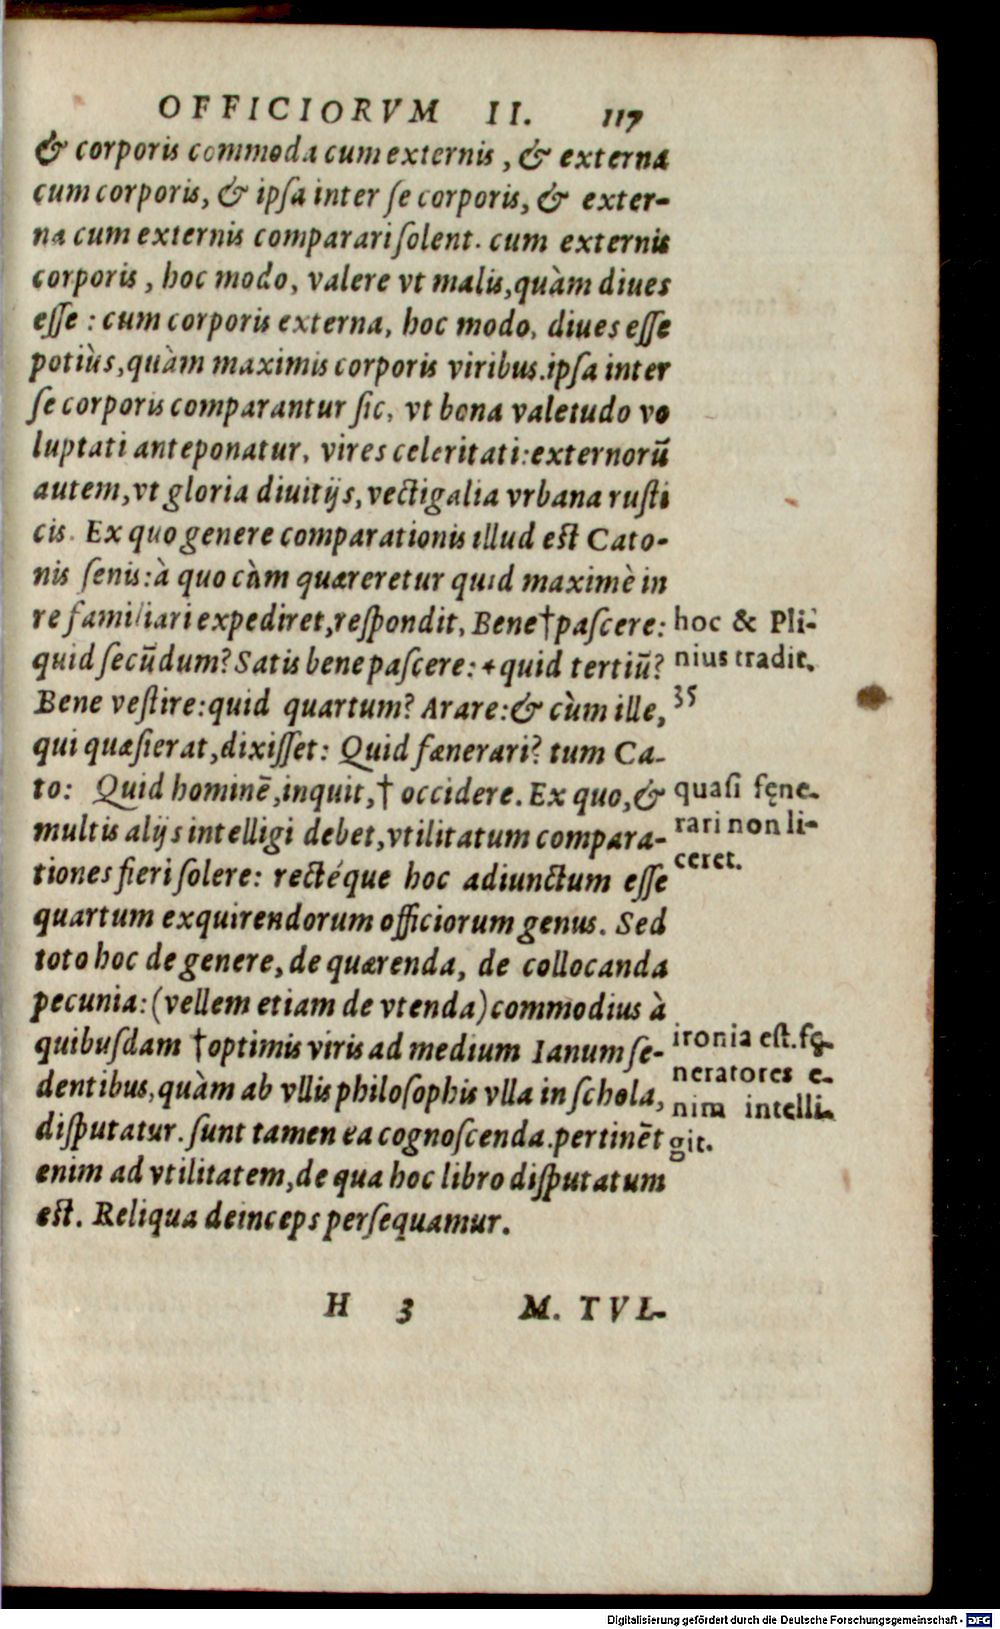 OFFICIORVM II. 117
& corporis commoda cum externis, & externa
cum corporis, & ipſa inter ſe corporis, & exter-
na cum externis comparari ſolent. cum externis
corporis, hoc modo, valere vt malis, quàm diues
eſſe : cum corporis externa, hoc modo, diues eſſe
potiùs, quàm maximis corporis viribus. ipſa inter
ſe corporis comparantur ſic, vt bona valetudo vo
luptati anteponatur, vires celeritati: externorū
autem, vt gloria diuitijs, vectigalia vrbana ruſti
cis. Ex quo genere comparationis illud eſt Cato-
nis ſenis: à quo cùm quæreretur quid maximè in
re familiari expediret, reſpondit, Bene † paſcere:
quid ſecūdum? Satis bene paſcere: + quid tertiū?
Bene veſtire: quid quartum? Arare: & cùm ille,
qui quæſierat, dixiſſet: Quid fænerari? tum Ca-
to: Quid hominē, inquit, † occidere. Ex quo, &
multis alijs intelligi debet, vtilitatum compara-
tiones fieri ſolere: rectéque hoc adiunctum eſſe
quartum exquirendorum officiorum genus. Sed
toto hoc de genere, de quærenda, de collocanda
pecunia: (vellem etiam de vtenda) commodius à
quibuſdam † optimis viris ad medium Ianum ſe-
dentibus, quàm ab vllis philoſophis vlla in ſchola,
diſputatur. ſunt tamen ea cognoſcenda. pertinēt
enim ad vtilitatem, de qua hoc libro diſputatum
eſt. Reliqua deinceps perſequamur.
hoc & Pli-
nius tradit.
35
quaſi fęne-
rari non li-
ceret.
ironia eſt. fę-
neratores e-
nim intelli-
git.
H 3 M. TVL-
Digitalisierung gefördert durch die Deutsche Forschungsgemeinschaft - DFG